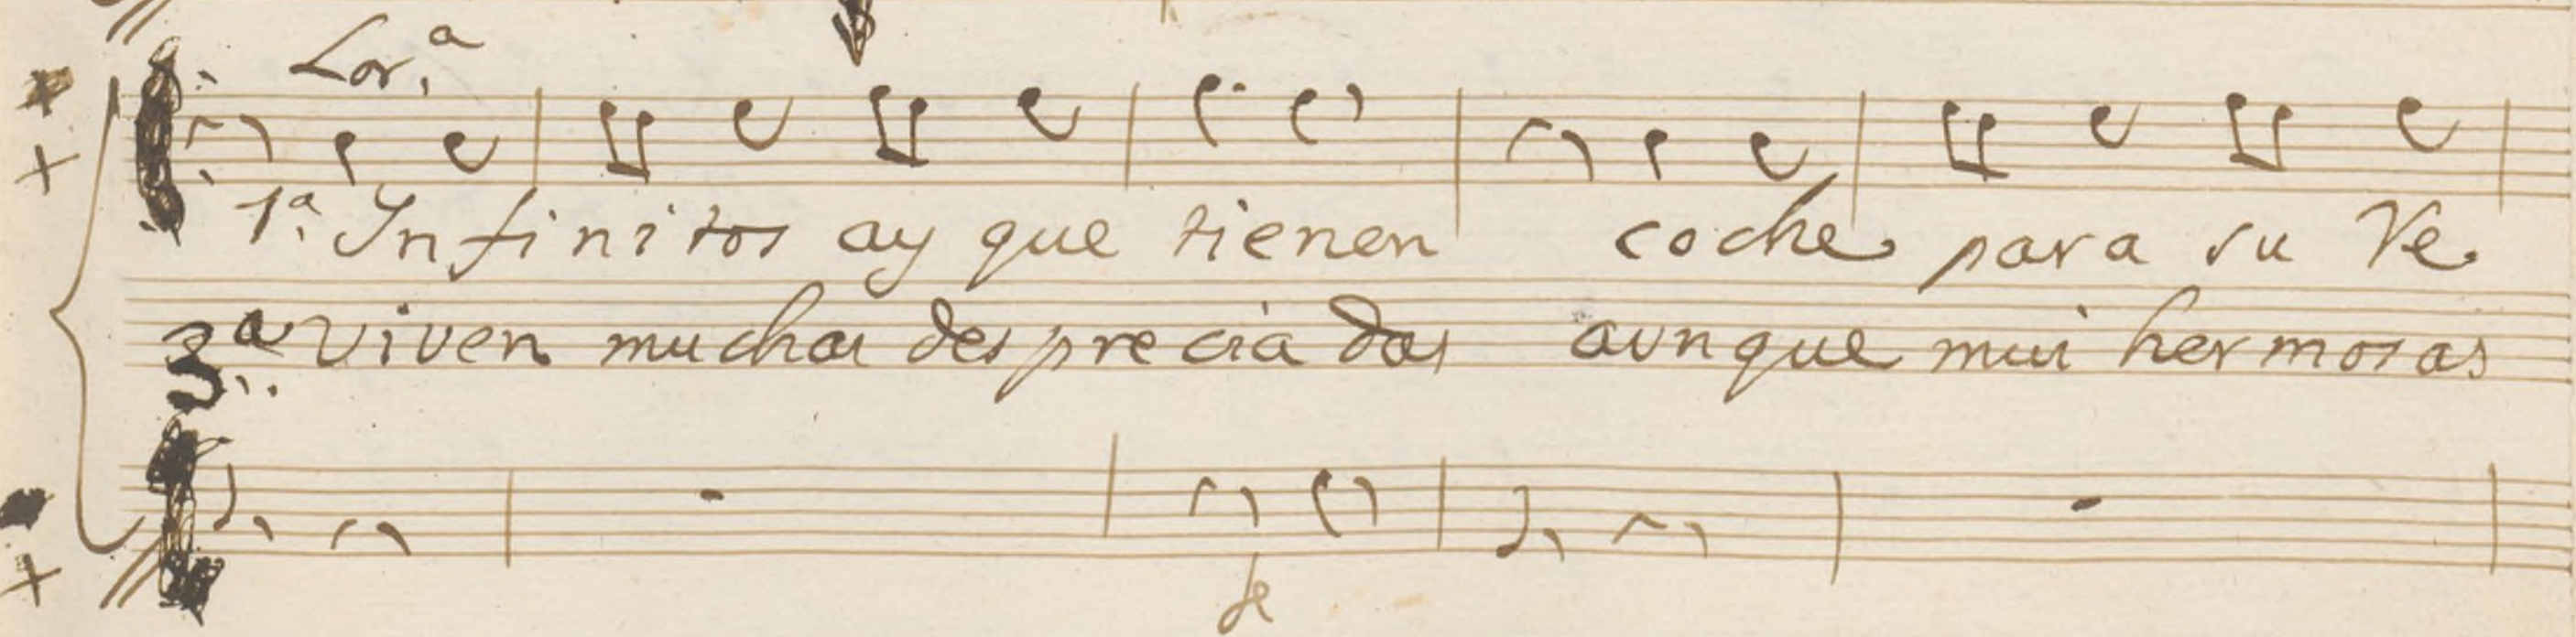 Lor.ª
1ª. Ynfinitos ay que tienen coche para su Ve
3ª.. viven muchas despreciadas aunque mui hermosas
fe